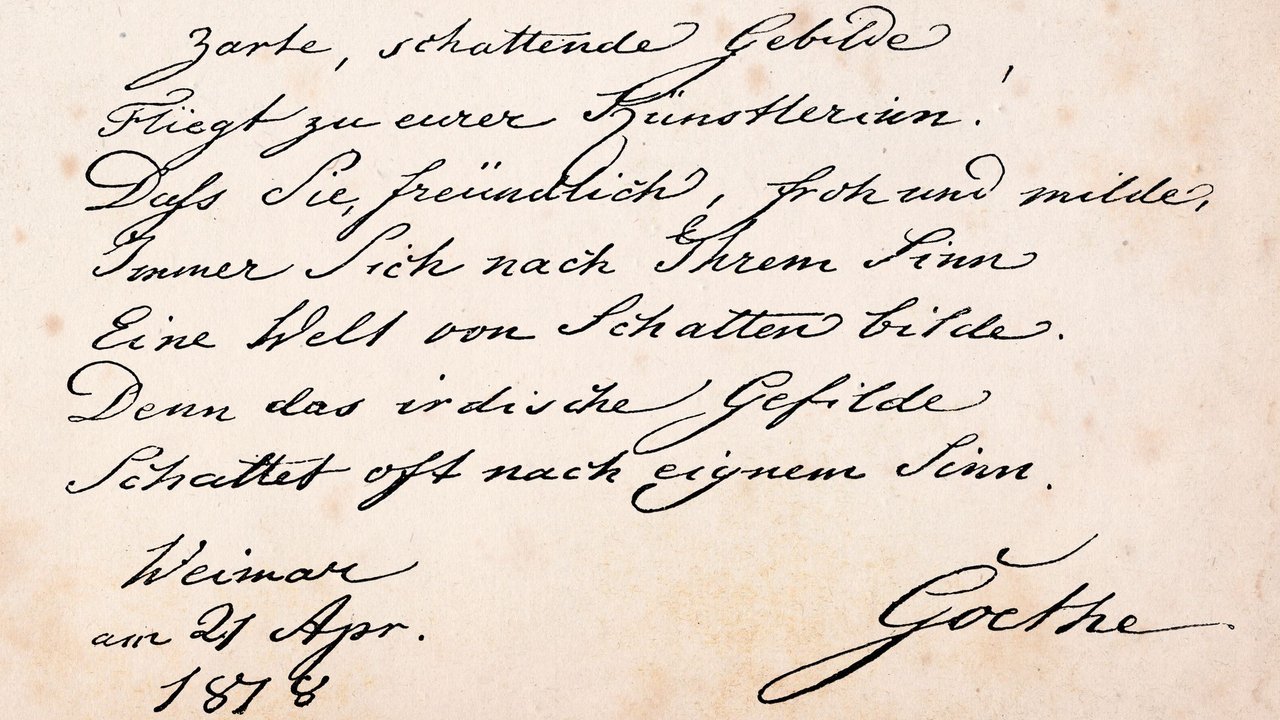 Zarte, schattende Gebilde
Fliegt zu eurer Künstlerinn!
Daſs Sie, freündlich, froh und milde,
Immer Sich nach Ihrem Sinn
Eine Welt von Schatten bilde.
Denn das irdische Gefilde
Schattet oft nach eignem Sinn.
Weimar
am 21 Apr.
1818
Goethe